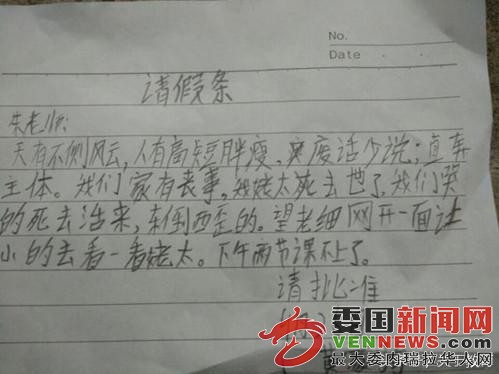 No.
Date
请假条
朱老师:
天有不侧风云,人有高短胖瘦、废话少说;直奔
主体。我们家有丧事,我姥太死去也了,我们哭
的死去活来,东倒西歪的。望老细网开一面让
小的去看一看姥太。下午两节课不上了。
请批准
委国新闻网
VENNEWS.com
最大委内瑞拉华人网